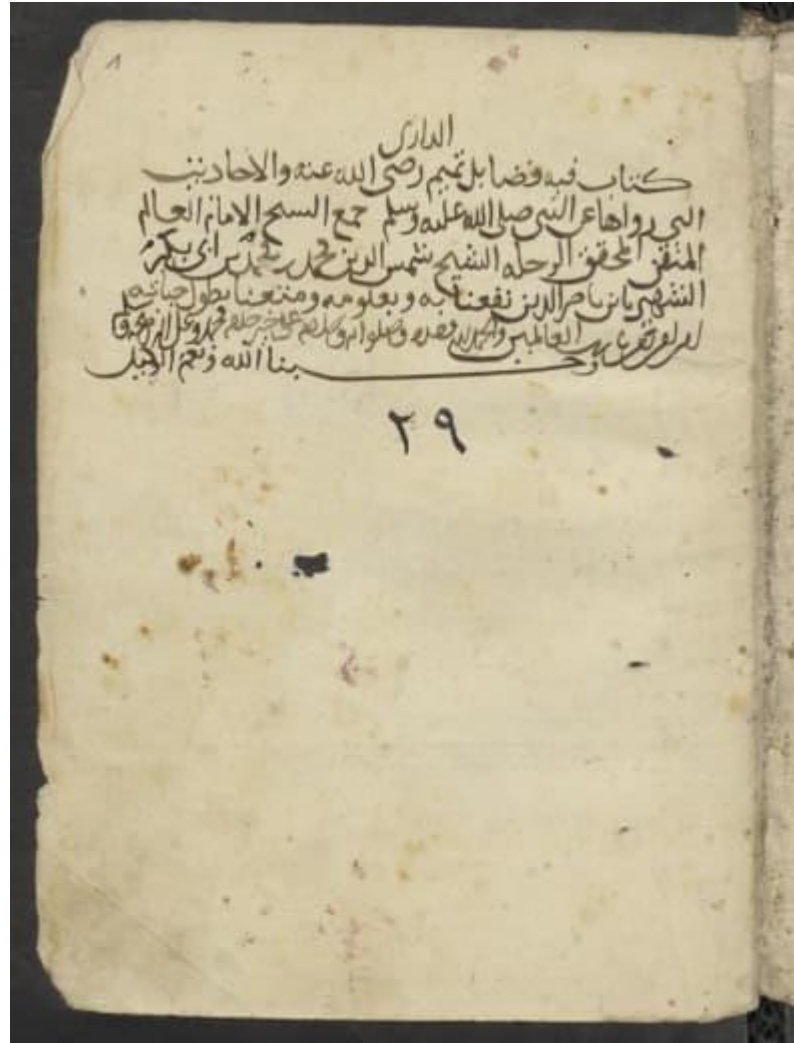 ١
الدارى
كتاب فيه فضايل تميم رضى الله عنه والاحاديث
التى رواها عن النبى صلى الله عليه وسلم جمع الشيخ الامام العالم
المتقن المحقق الرحله الشيخ شمس الدين محمد بن ابى بكر
الشهير بابن ناصر الدين نفعنا به وبعلومه ومتعنا بطول حياته
العالمين والحمد لله وحده وصلواته على خير خلقه محمد
وحسبنا الله ونعم الوكيل
٢٩